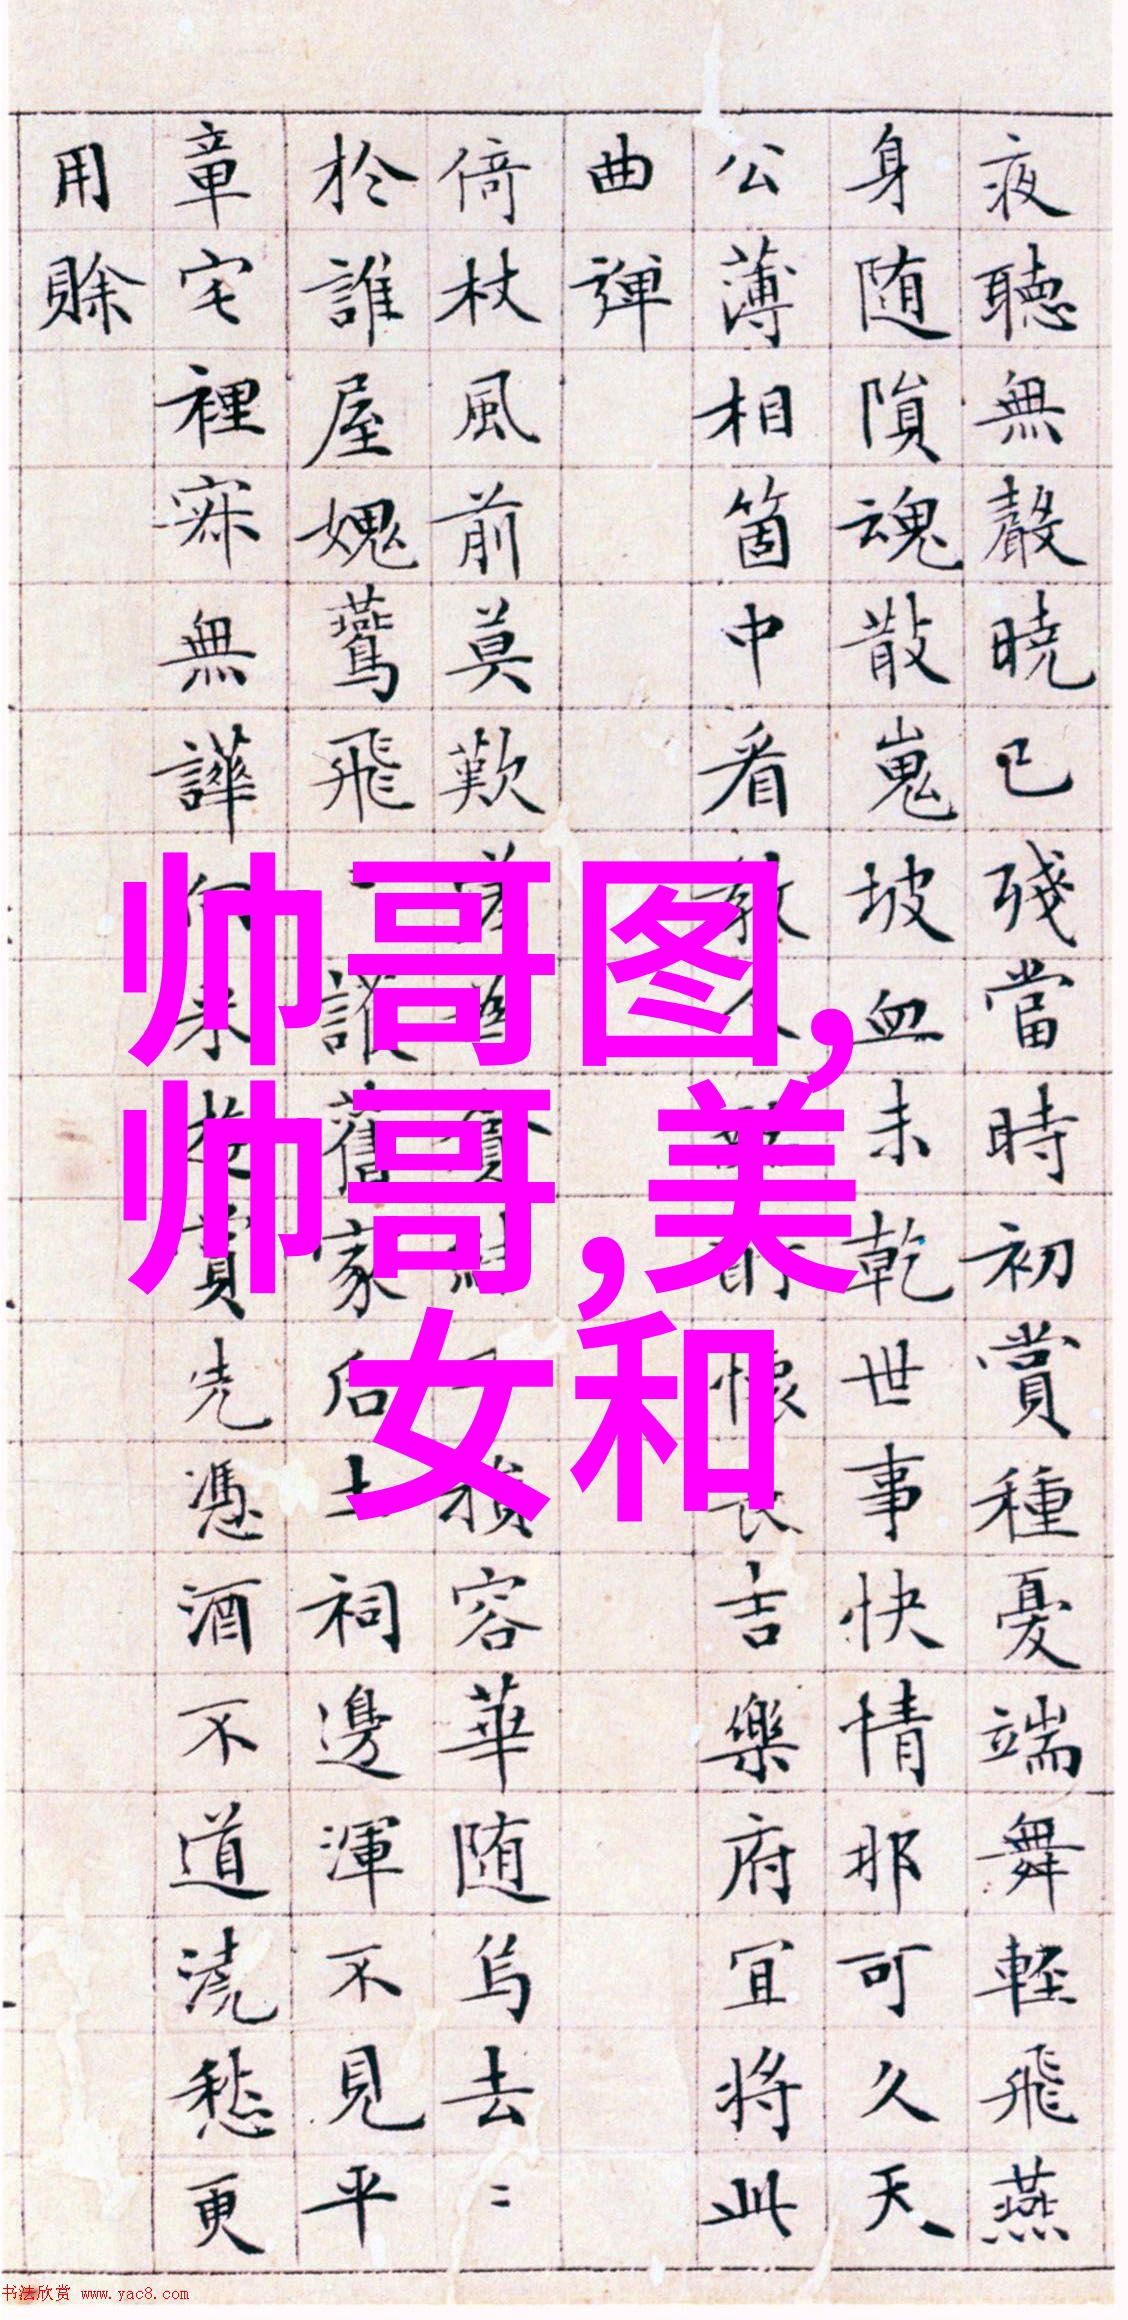 夜聽無聲曉已殘當時初賞種憂端舞輕飛燕
身随隕魂散嵬坡血未乾世事快情那可久天
公薄相箇中看教懷長吉樂府宜將此
曲彈
倚杖風前莫歎容華随烏去〻
於誰屋媿鷰飛舊家后土祠邊渾不見平
章宅裡寂無譁賞先憑酒不道澆愁更
用賒
帅哥图,
帅哥,美
女和
书法欣赏 www.yac8.com